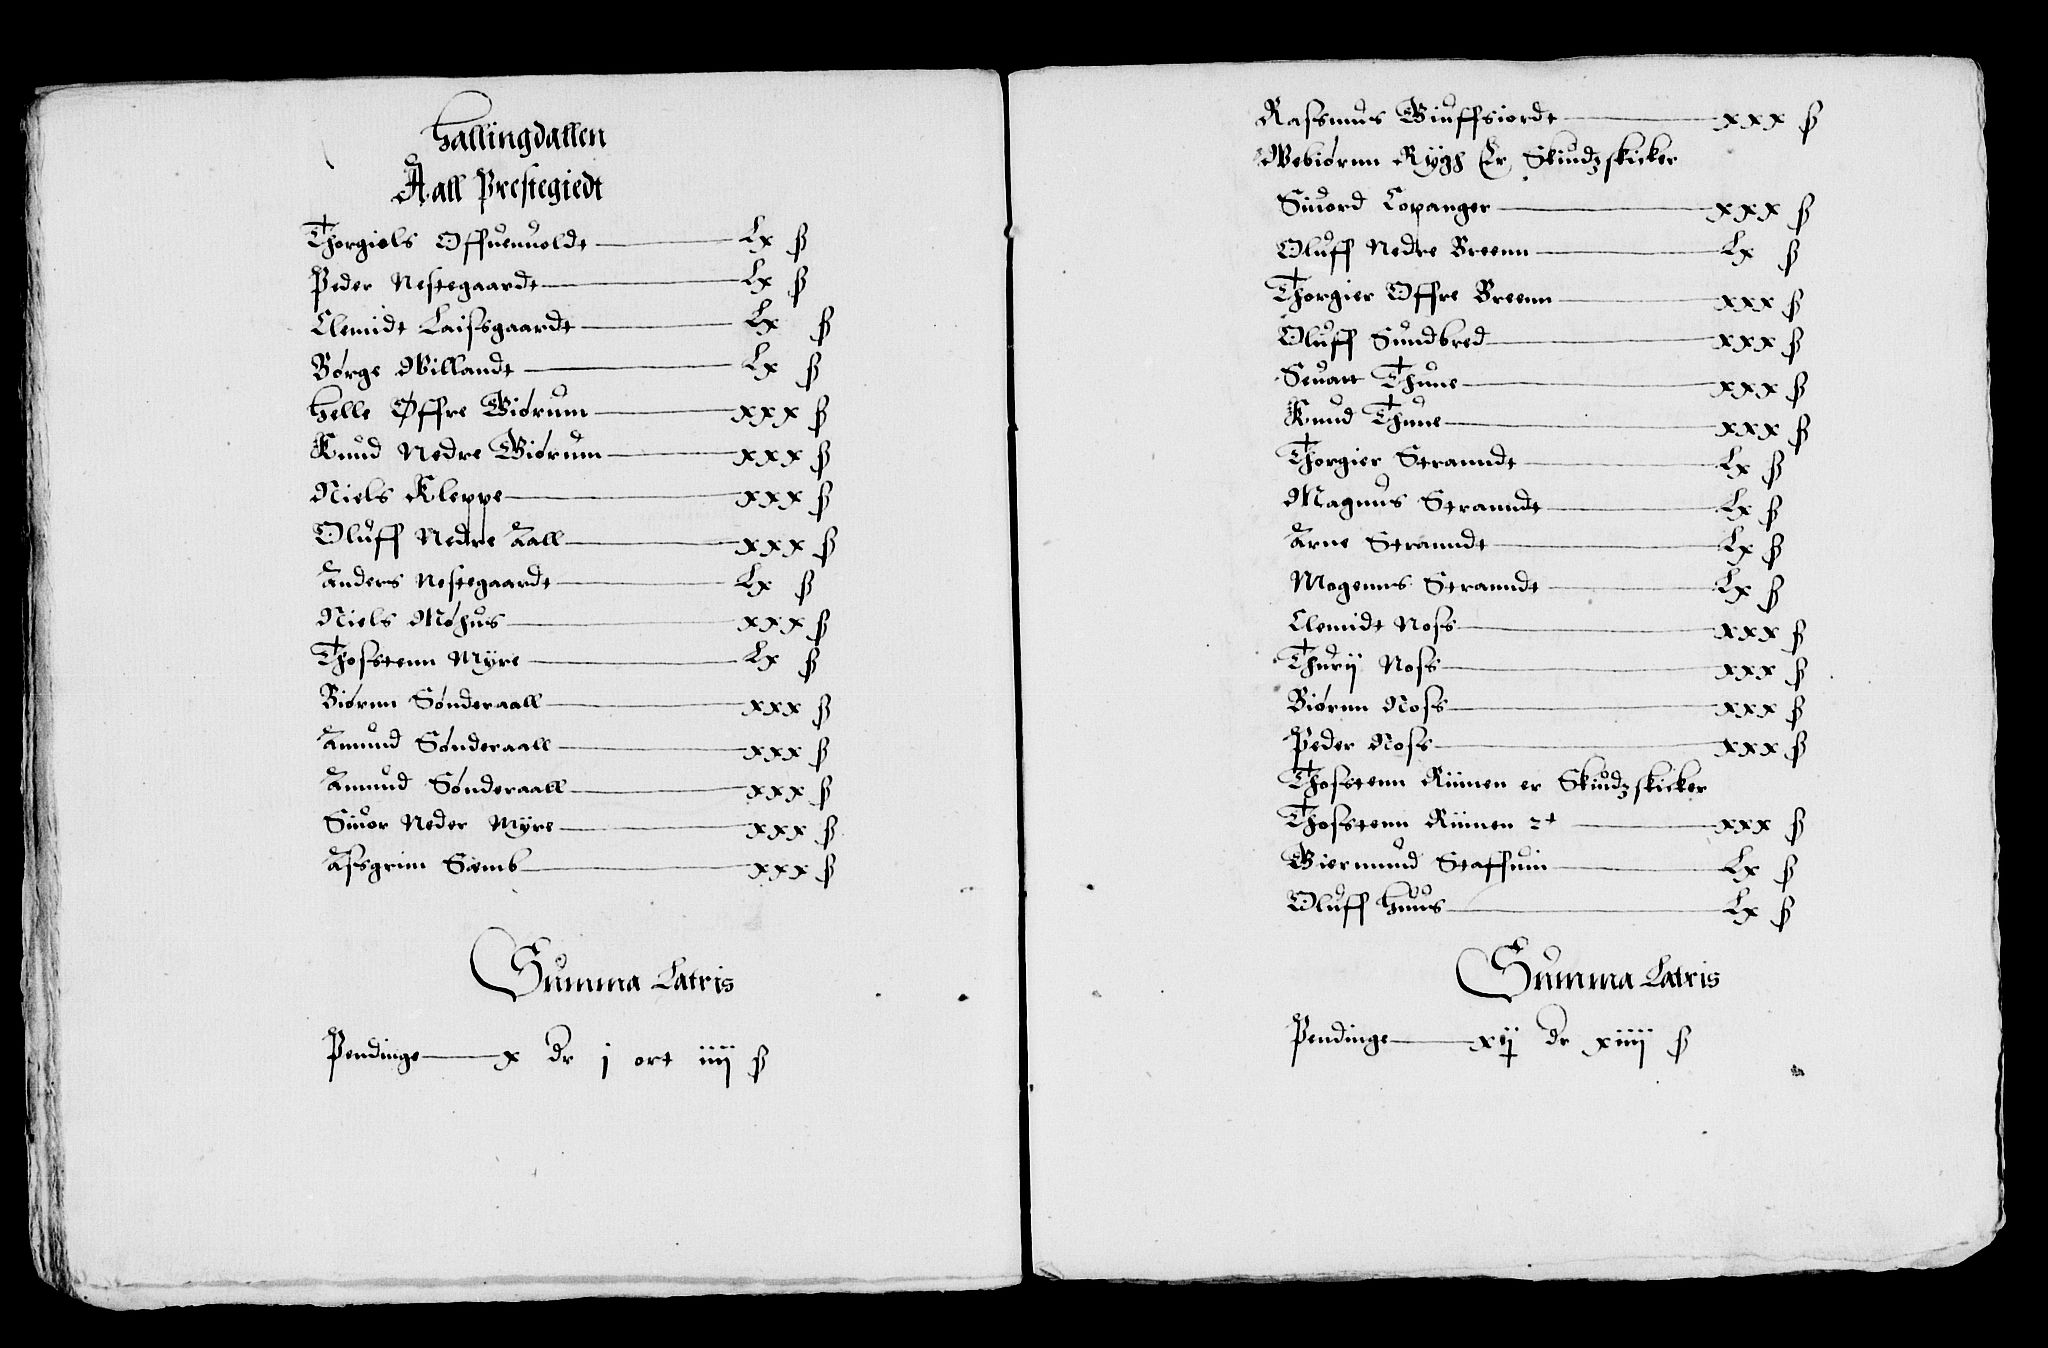 Hallingdallen
Aall Prestegiedt
Thorgiols Offuenuoldt Lx ß
Peder Nestegaardt Lx ß
Clemidt Laissgaardt Lx ß
Børge Willandt Lx ß
Helle Øffre Biørum xxx ß
Knud Nedre Biørum xxx ß
Niels Kleppe xxx ß
Oluff Nedre Aall xxx ß
Anders Nestegaardt Lx ß
Niels Møhus xxx ß
Thosstenn Myre Lx ß
Biørnn Sønderaall xxx ß
Amund Sønderaall xxx ß
Amund Sønderaall xxx ß
Siuor Neder Myre xxx ß
Assgrim Sæmb xxx ß
Summa Latris
Pendinge x dr j ort iiij ß
Rasmus Biuffsiordt xxx ß
Webiørnn Rygh Er Skiudzskicker
Siuord Copanger xxx ß
Oluff Nedre Breenn Lx ß
Thorgier Offre Breenn xxx ß
Oluff Sundbred xxx ß
Seuatt Thune xxx ß
Knud Thune xxx ß
Thorgier Stranndt Lx ß
Magnus Stranndt Lx ß
Arne Stranndt Lx ß
Mogenns Stranndt Lx ß
Clemidt Noss xxx ß
Thurij Noss xxx ß
Biørnn Noss xxx ß
Peder Noss xxx ß
Thosstenn Rimen er Skiudzskicker
Thosstenn Rimen xxx ß
Biermund Staffuin Lx ß
Oluff Huus Lx ß
Summa Latris
Pendinge xij dr xiiij ß